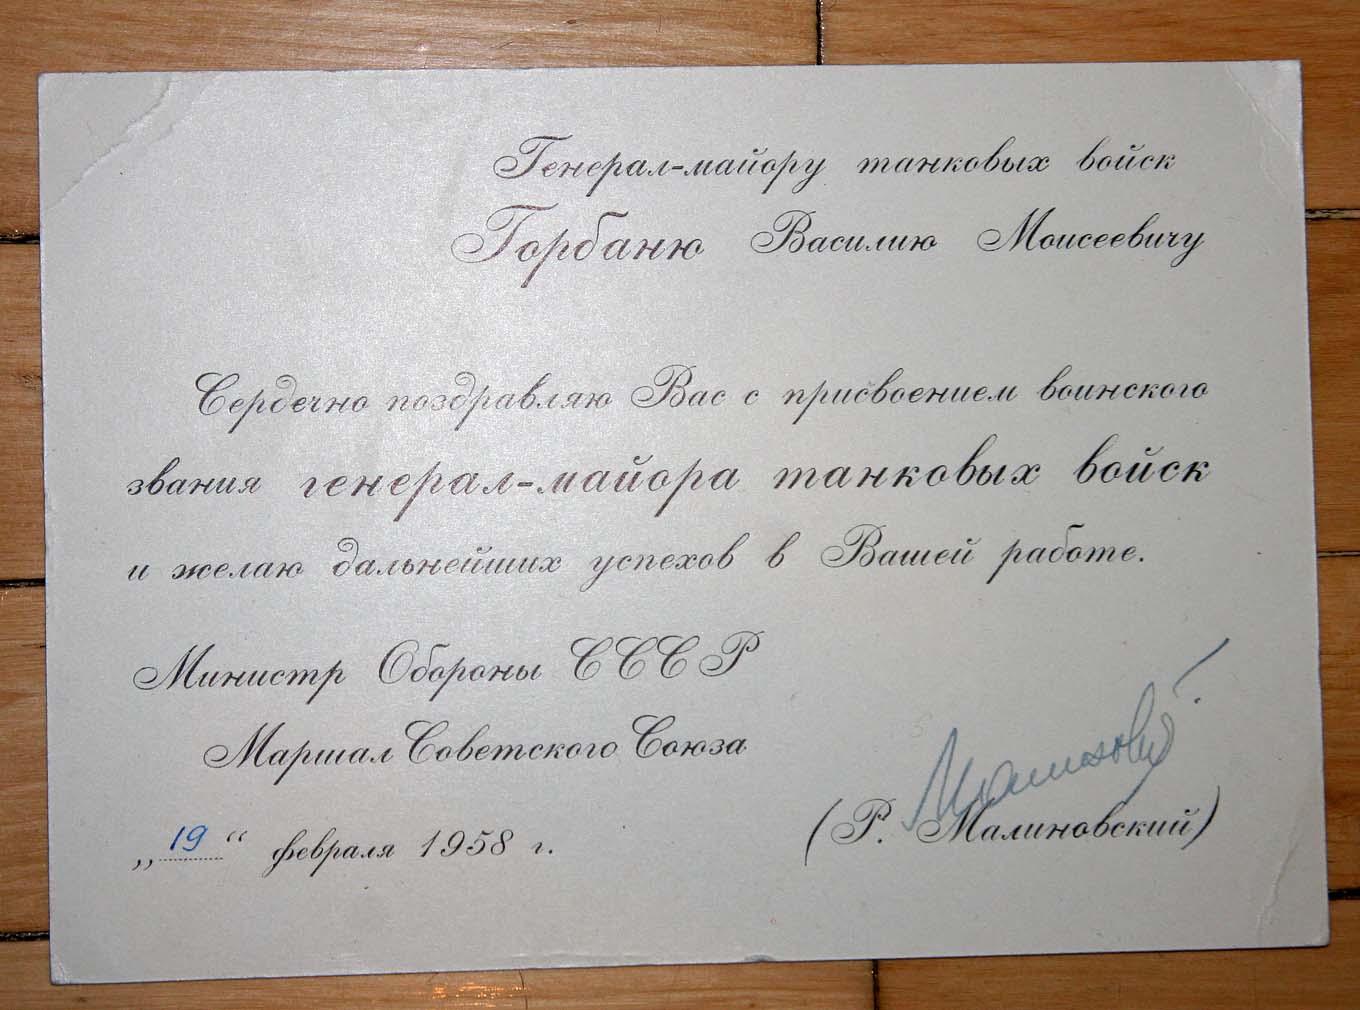 Генерал-майору танковых войск
Горбаню Василию Моисеевичу
Сердечно поздравляю Вас с присвоением воинского
звания генерал-майора танковых войск
и желаю дальнейших успехов в Вашей работе.
Министр Обороны СССР
Маршал Советского Союза
(Р. Малиновский)
„19“ февраля 1958 г.